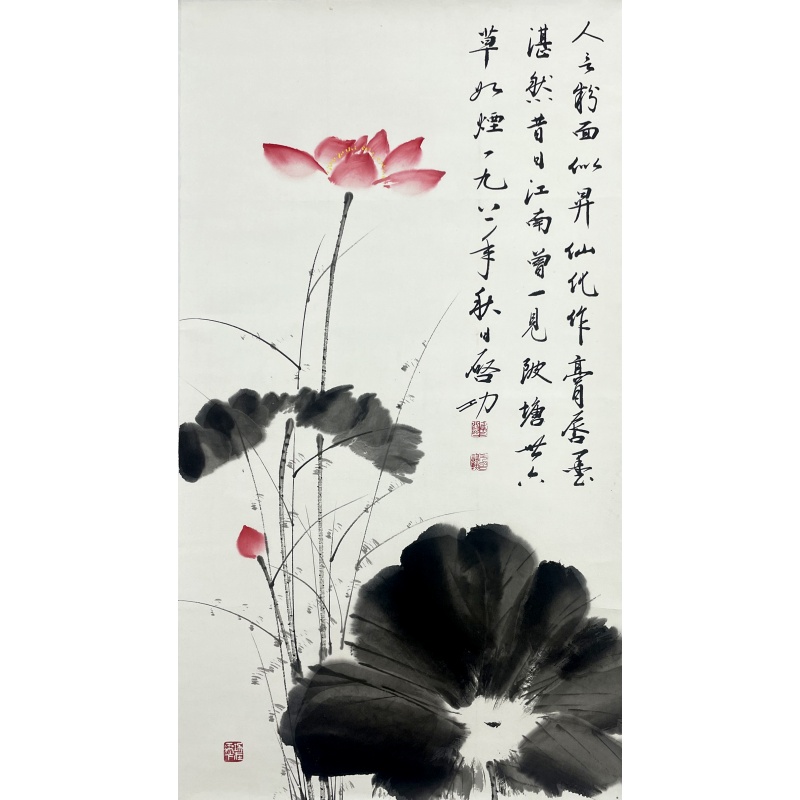 人言粉面似昇仙化作膏唇墨
湛然昔日江南曾一見陂塘卅六
草如煙一九八二年秋日啓功